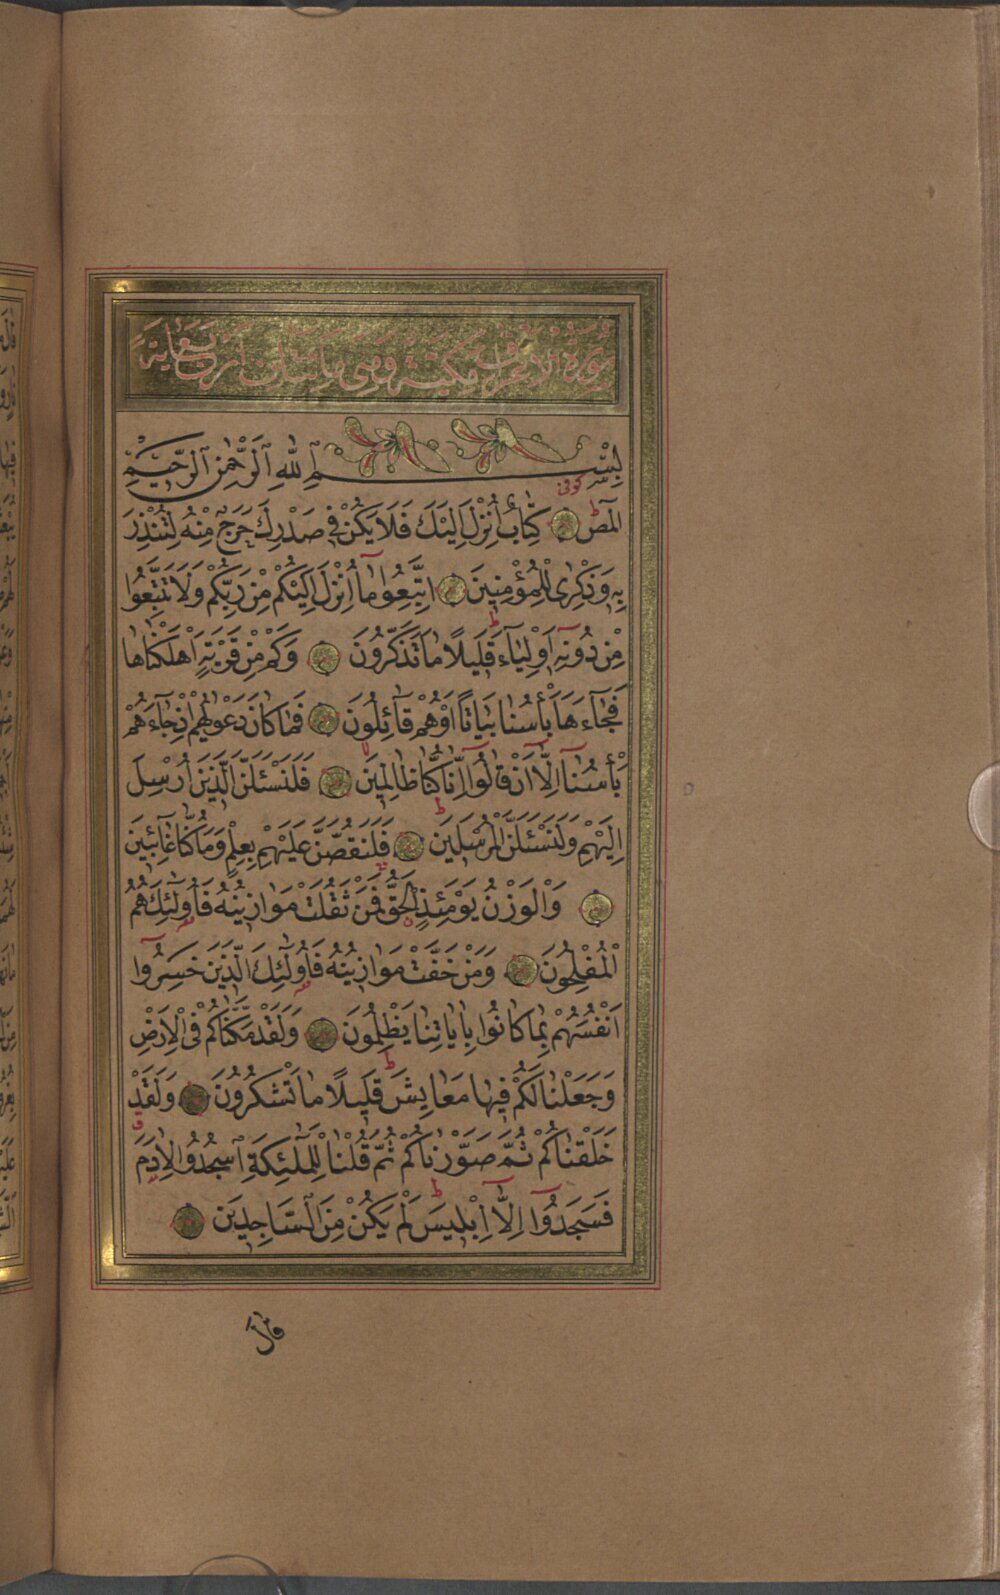 سُورَةُ الْاَعْرَافِ مَكِّيَّةٌ وَهِىَ مِائَتَانِ
بِسْمِ ٱللّٰهِ ٱلرَّحْمٰنِ ٱلرَّحِيْمِ
كوفى
الٓمٓصٓ كِتَابٌ اُنْزِلَ اِلَيْكَ فَلَا يَكُنْ فٖى صَدْرِكَ حَرَجٌ مِنْهُ لِتُنْذِرَ
بِهٖ وَذِكْرٰى لِلْمُؤْمِنٖينَ اِتَّبِعُوا مَٓا اُنْزِلَ اِلَيْكُمْ مِنْ رَبِّكُمْ وَلَا تَتَّبِعُوا
مِنْ دُونِهٖٓ اَوْلِيَٓاءَ قَلٖيلًا مَا تَذَكَّرُونَ وَكَمْ مِنْ قَرْيَةٍ اَهْلَكْنَاهَا
فَجَٓاءَهَا بَأْسُنَا بَيَاتًا اَوْهُمْ قَٓائِلُونَ فَمَا كَانَ دَعْوٰيهُمْ اِذْ جَٓاءَهُمْ
بَأْسُنَٓا اِلَّٓا اَنْ قَالُٓوا اِنَّا كُنَّا ظَالِمٖينَ فَلَنَسْـَٔلَنَّ الَّذٖينَ اُرْسِلَ
اِلَيْهِمْ وَلَنَسْـَٔلَنَّ الْمُرْسَلٖينَ فَلَنَقُصَّنَّ عَلَيْهِمْ بِعِلْمٍ وَمَا كُنَّا غَٓائِبٖينَ
وَالْوَزْنُ يَوْمَئِذٍ الْحَقُّ فَمَنْ ثَقُلَتْ مَوَازٖينُهُ فَاُولٰٓئِكَ هُمُ
الْمُفْلِحُونَ وَمَنْ خَفَّتْ مَوَازٖينُهُ فَاُولٰٓئِكَ الَّذٖينَ خَسِرُٓوا
اَنْفُسَهُمْ بِمَا كَانُوا بِاٰيَاتِنَا يَظْلِمُونَ وَلَقَدْ مَكَّنَّاكُمْ فِى الْاَرْضِ
وَجَعَلْنَا لَكُمْ فٖيهَا مَعَايِشَ قَلٖيلًا مَا تَشْكُرُونَ وَلَقَدْ
خَلَقْنَاكُمْ ثُمَّ صَوَّرْنَاكُمْ ثُمَّ قُلْنَا لِلْمَلٰٓئِكَةِ ٱسْجُدُوا لِاٰدَمَ
فَسَجَدُٓوا اِلَّٓا اِبْلٖيسَ لَمْ يَكُنْ مِنَ ٱلسَّاجِدٖينَ
قَالَ